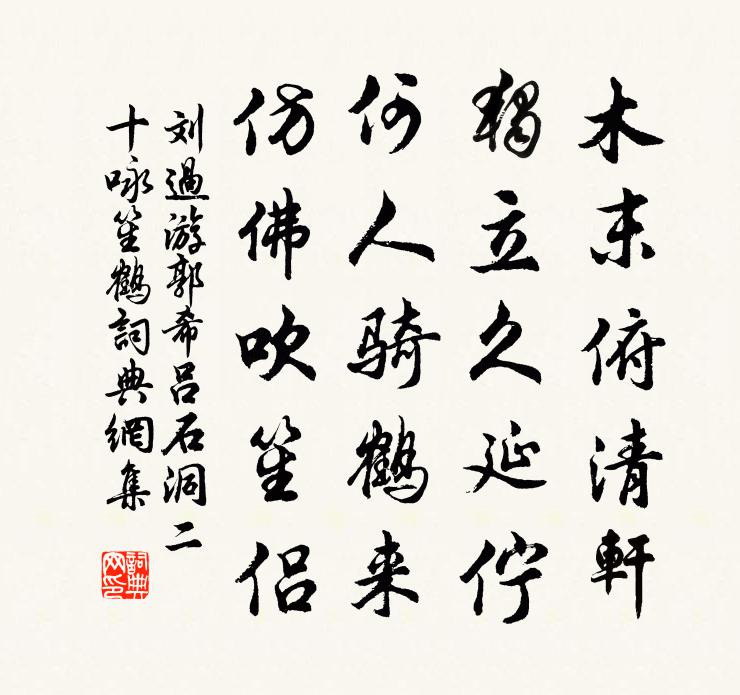 木末俯清軒
獨立久延佇
何人骑鶴来
仿佛吹笙侣
刘過游郭希吕石洞二
十咏笙鶴詞典網集
詞典網印